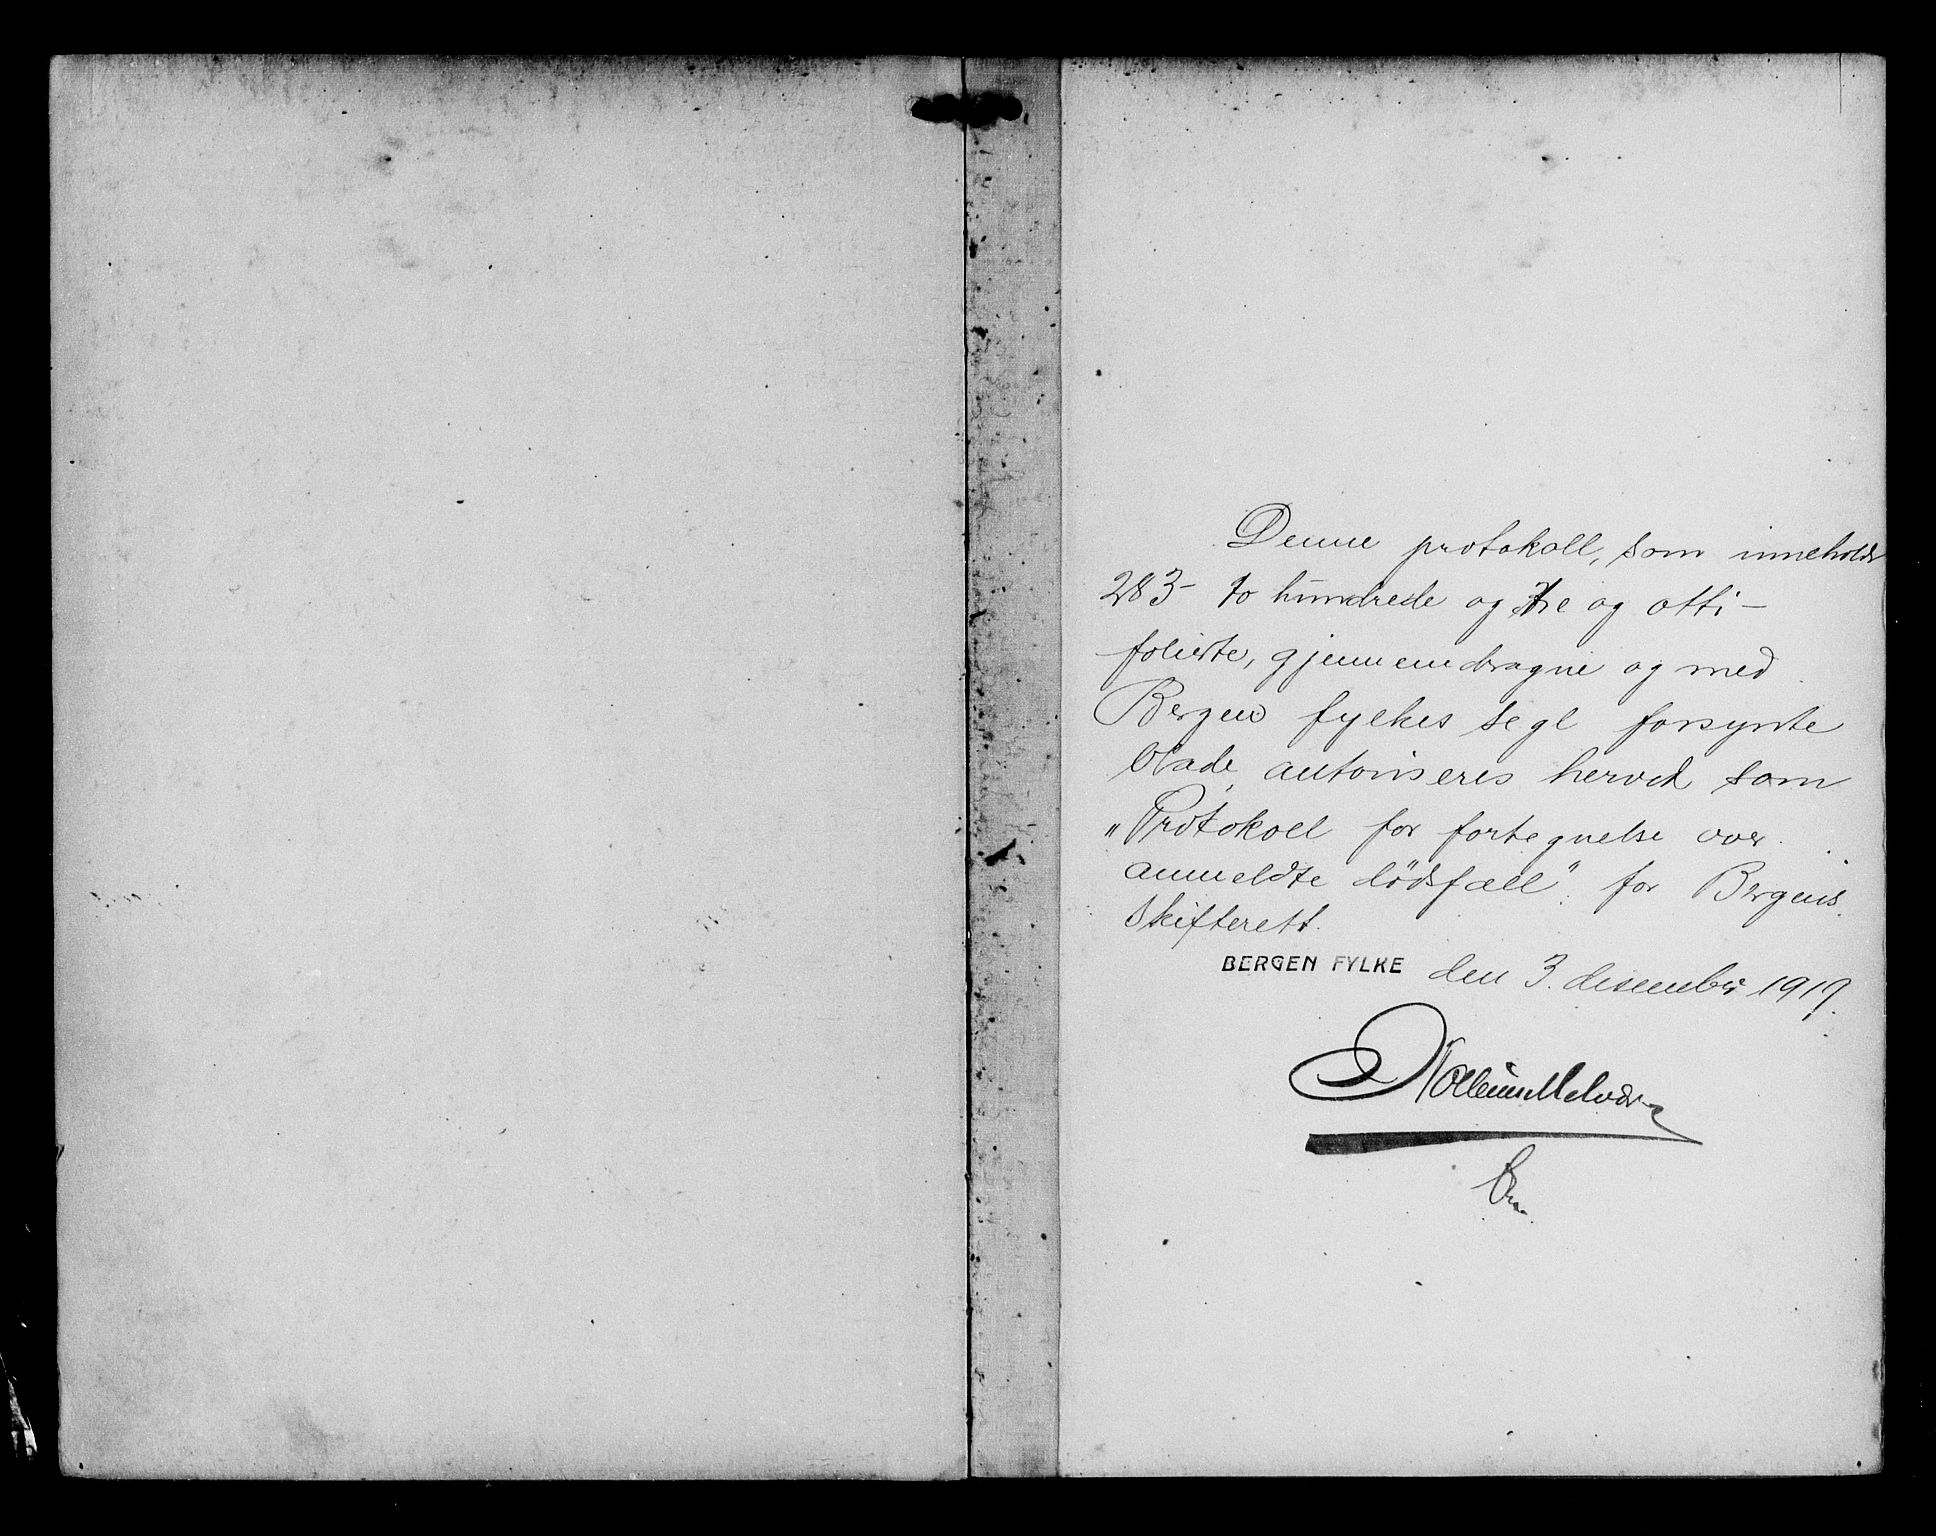 Denne protokoll, som inneholder
283 - to hundrede og tre og otti -
folierte, gjennemdragne og med
Bergen fylkes segl forsynte
blade, autoriseres herved som
"Protokoll for fortegnelse over
anmeldte dödsfall" for Bergens
skifterett.
BERGEN FYLKE den 3. desember 1919.